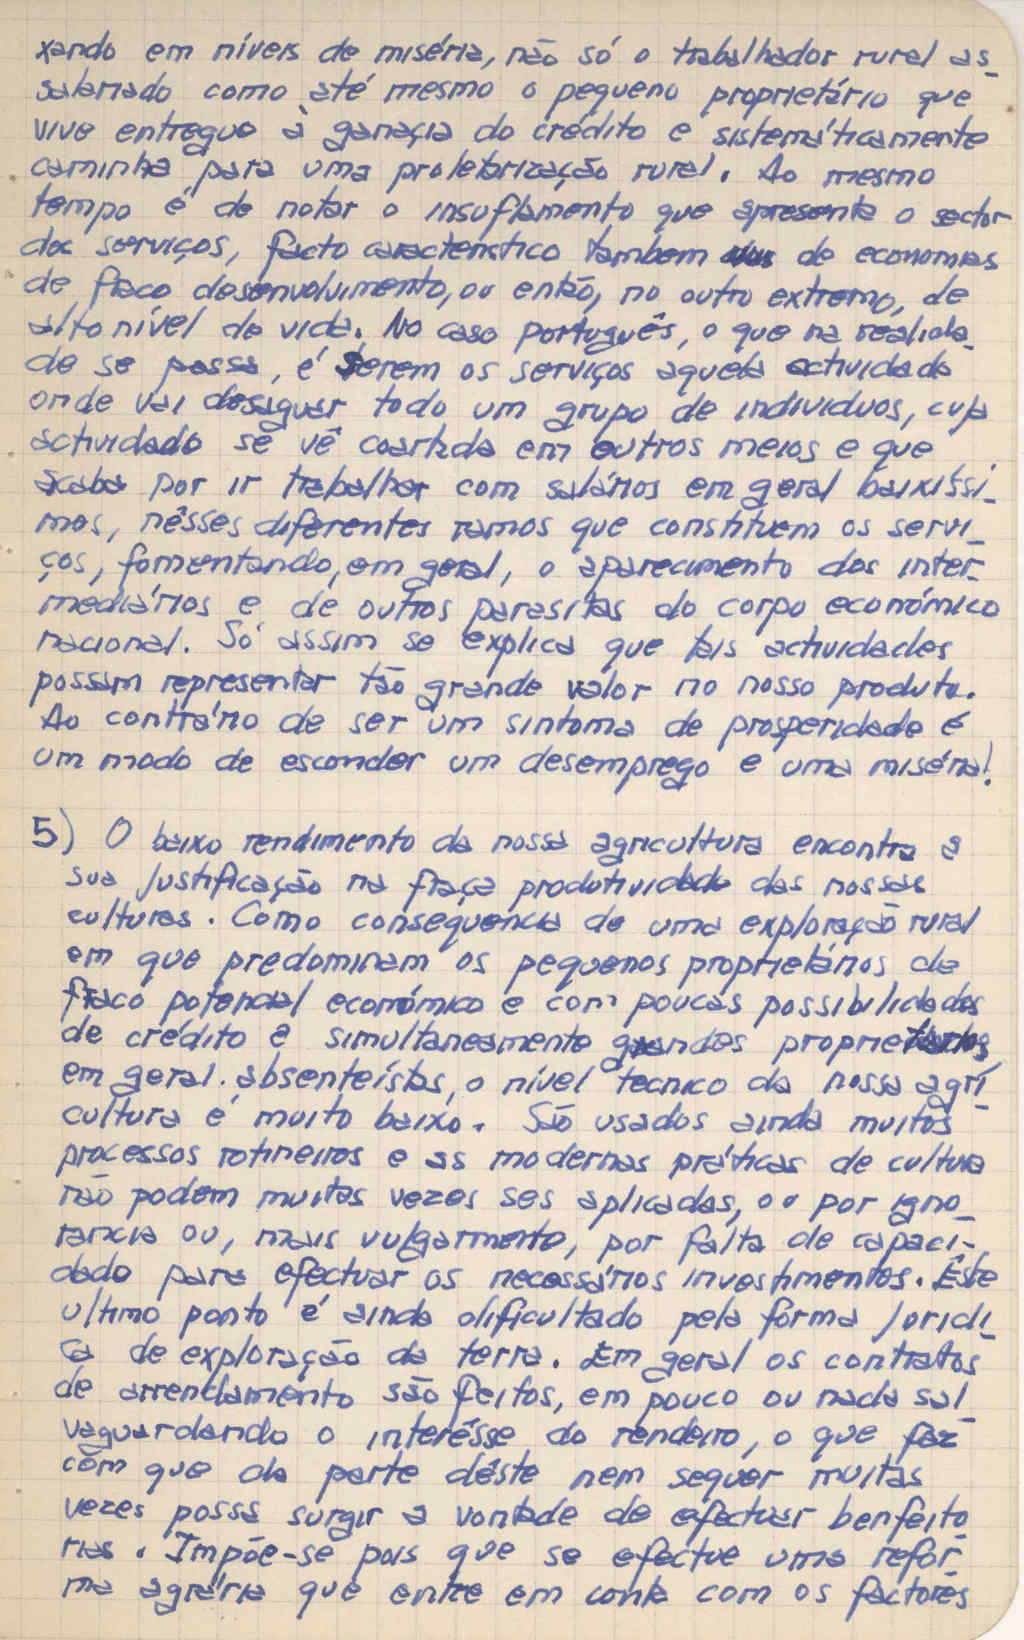 xando em níveis de miséria, não só o trabalhador rural as-
salariado como até mesmo o pequeno proprietário que
vive entregue à ganaçia do crédito e sistemáticamente
caminha para uma proletarização rural. Ao mesmo
tempo é de notar o insuflamento que apresenta o sector
dos serviços, facto característico tambem de economias
de fraco desenvolvimento, ou então, no outro extremo, de
alto nível de vida. No caso português, o que na realida-
de se passa, é serem os serviços aquela actividade
onde vai desaguar todo um grupo de individuos, cuja
actividade se vê coartada em outros meios e que
acaba por ir trabalhar com salários em geral baixíssi-
mos, nêsses diferentes ramos que constituem os servi-
ços, fomentando, em geral, o aparecimento dos inter-
mediários e de outros parasitas do corpo económico
nacional. Só assim se explica que tais actividades
possam representar tão grande valor no nosso produto.
Ao contrário de ser um sintoma de prosperidade é
um modo de esconder um desemprego e uma miséria!
5) O baixo rendimento da nossa agricultura encontra a
sua justificação na fraca produtividade das nossas
culturas. Como consequencia de uma exploração rural
em que predominam os pequenos proprietários de
fraco potencial económico e com poucas possibilidades
de crédito e simultaneamente grandes proprietários
em geral absenteístas, o nível tecnico da nossa agri-
cultura é muito baixo. São usados ainda muitos
processos rotineiros e as modernas práticas de cultura
não podem muitas vezes ses aplicadas, ou por igno-
rancia ou, mais vulgarmente, por falta de capaci-
dade para efectuar os necessários investimentos. Êste
ultimo ponto é ainda dificultado pela forma juridi-
ca de exploração da terra. Em geral os contratos
de arrendamento são feitos, em pouco ou nada sal-
vaguardando o interêsse do rendeiro, o que faz
com que da parte dêste nem sequer muitas
vezes possa surgir a vontade de efectuar benfeito-
rias. Impõe-se pois que se efectue uma refor-
ma agrária que entre em conta com os factores